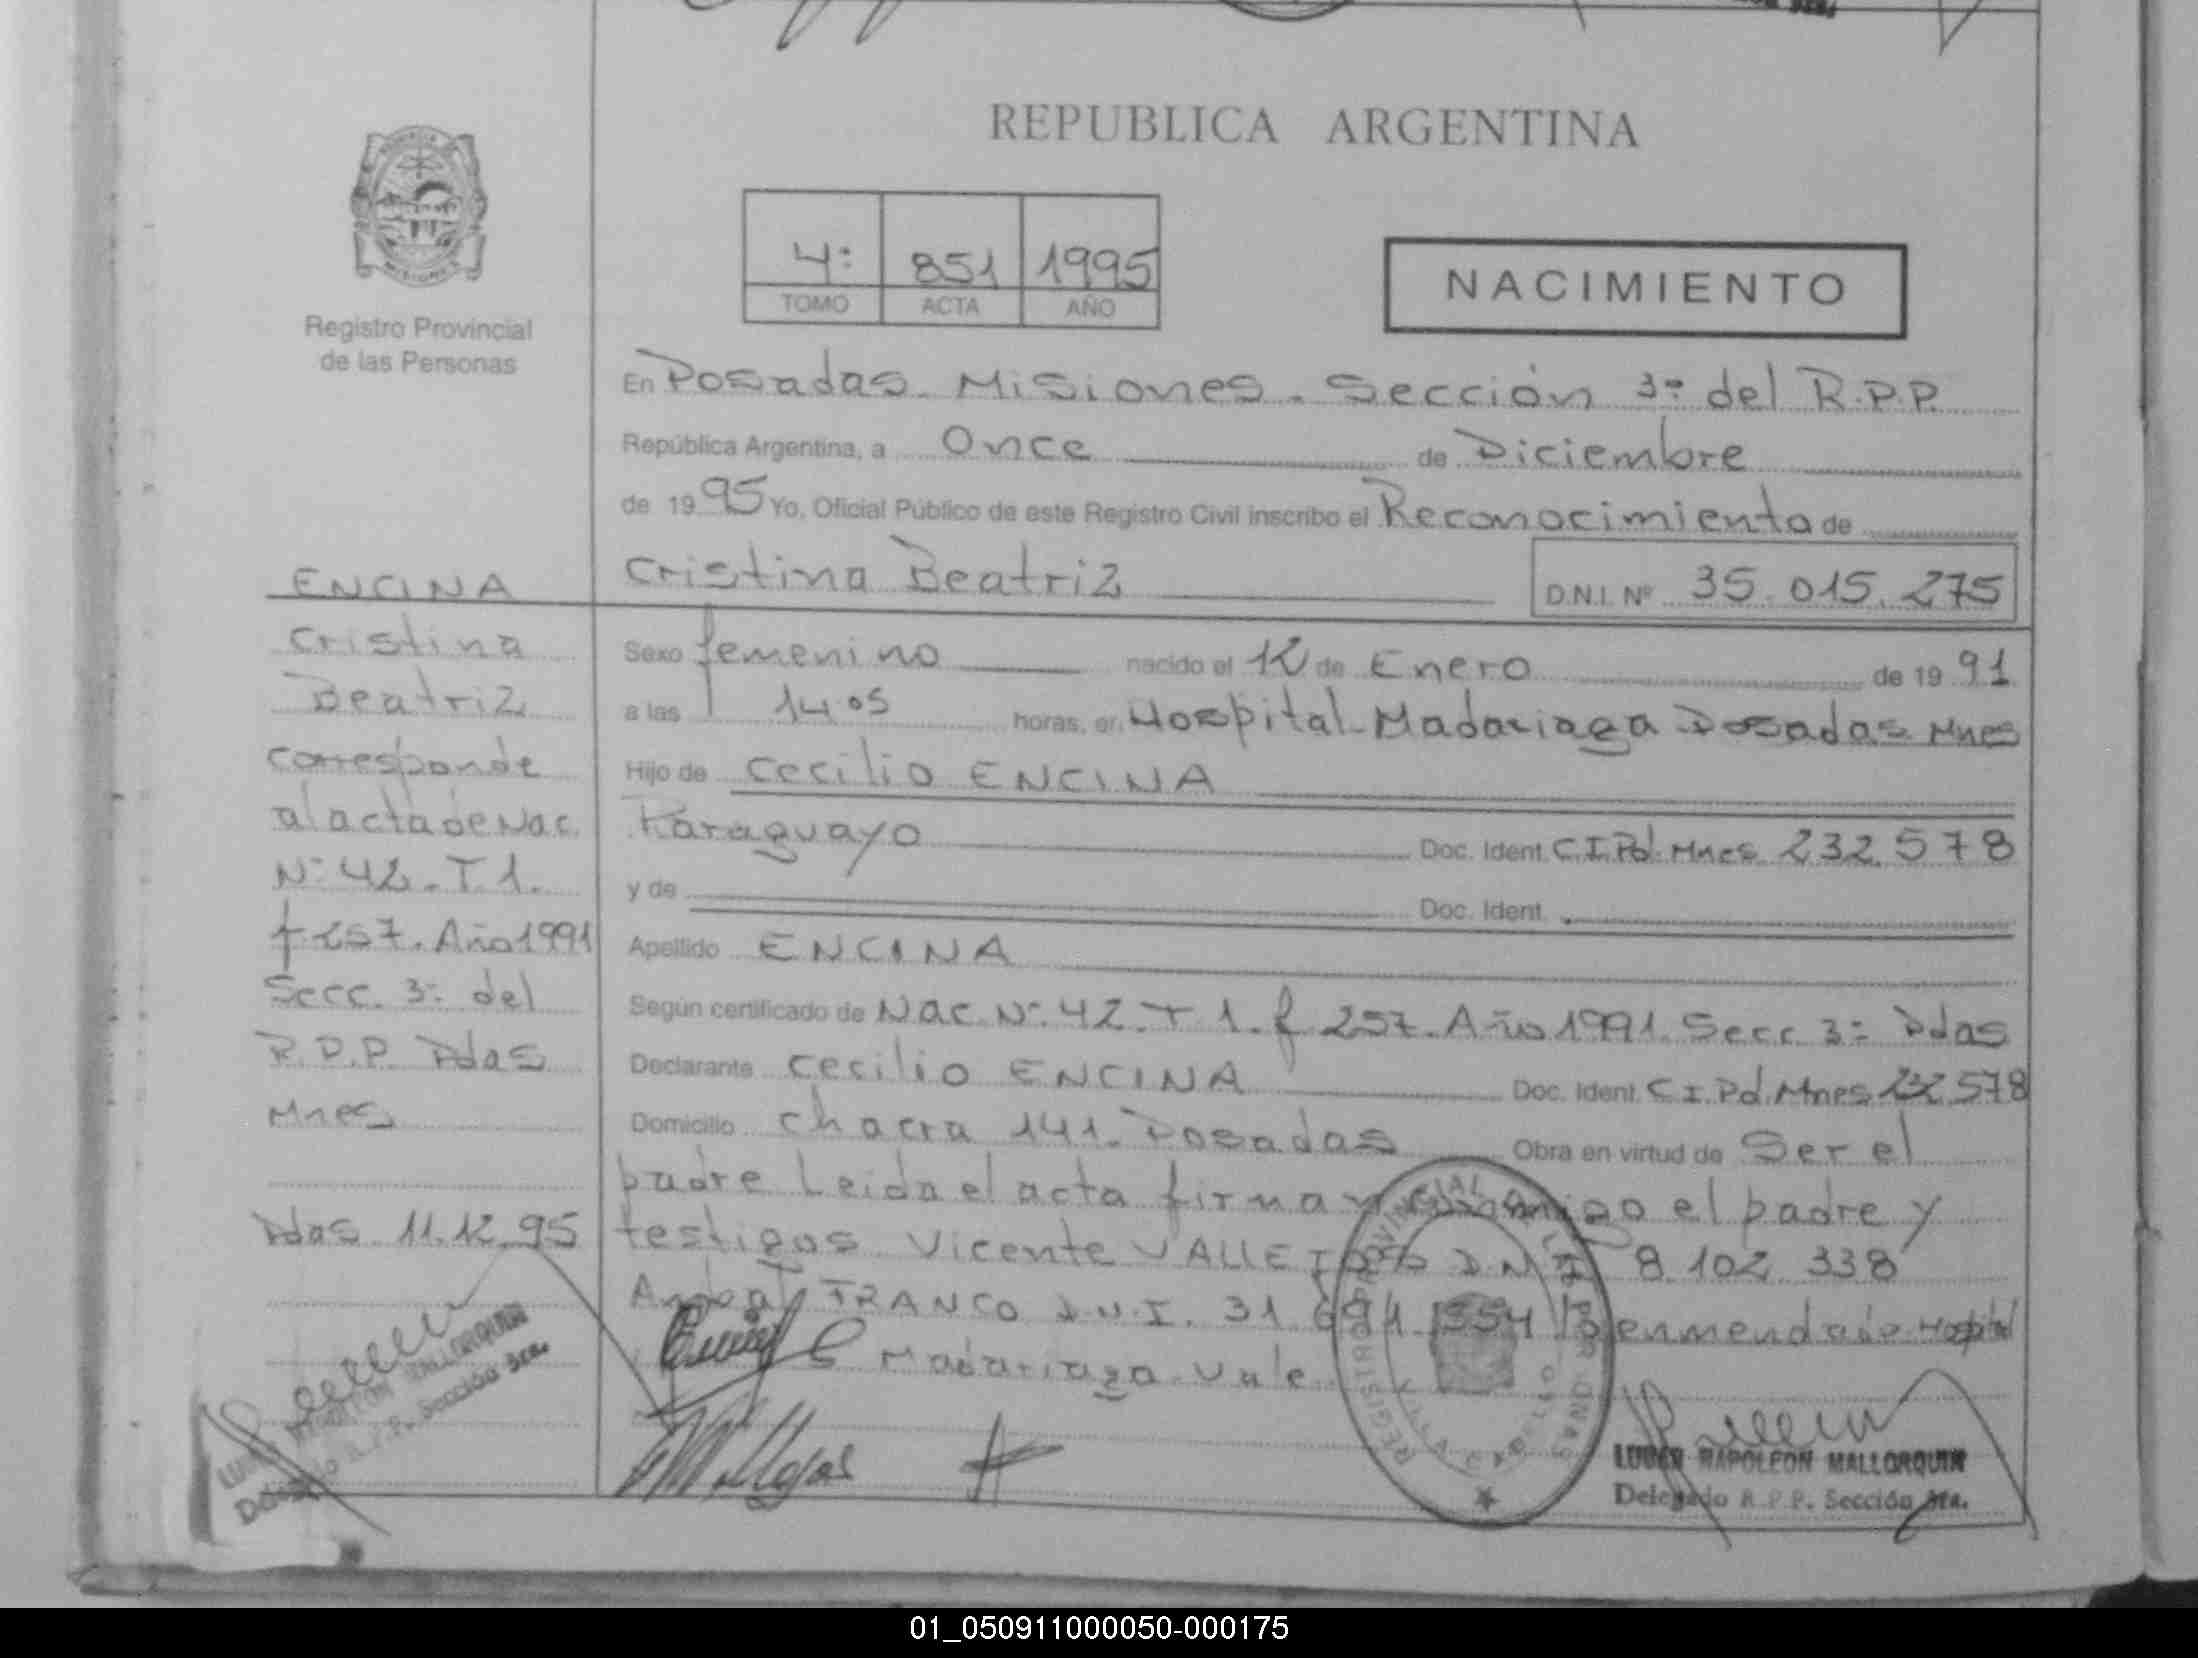 REPUBLICA ARGENTINA
4: 851 1995
TOMO ACTA AÑO
NACIMIENTO
Registro Provincial
de las Personas
En Posadas. Misiones. Sección 3º del R.P.P.
República Argentina, a Once de Diciembre
de 1995 Yo, Oficial Público de este Registro Civil inscribo el Reconocimiento de
Cristina Beatriz D.N.I. Nº 35.015.275
Sexo femenino nacido el 12 de Enero de 1991
a las 14.05 horas, en Hospital Madariaga Posadas Mnes
Hijo de Cecilio ENCINA
Paraguayo Doc. Ident. C.I.Pol. Mnes 232.578
y de Doc. Ident.
Apellido ENCINA
Según certificado de Nac. Nº 42. T 1. f 257. Año 1991. Secc. 3º Pdas
Declarante Cecilio ENCINA Doc. Ident. C.I.Pol. Mnes 232.578
Domicilio Chacra 141. Posadas Obra en virtud de Ser el
padre Leida el acta firman conmigo el padre y
testigos Vicente D.N.I. 8.102.338
FRANCO D.N.I. 31 enmendado Hospital
Madariaga Vale
LUBEN NAPOLEON MALLORQUIN
Delegado R.P.P. Sección 3ra.
ENCINA
Cristina
Beatriz
corresponde
al acta de Nac.
Nº 42. T 1.
f 257. Año 1991
Secc. 3º del
R.P.P. Pdas
Mnes
Pdas 11.12.95
MALLORQUIN
R.P.P. Sección 3ra.
01_050911000050-000175